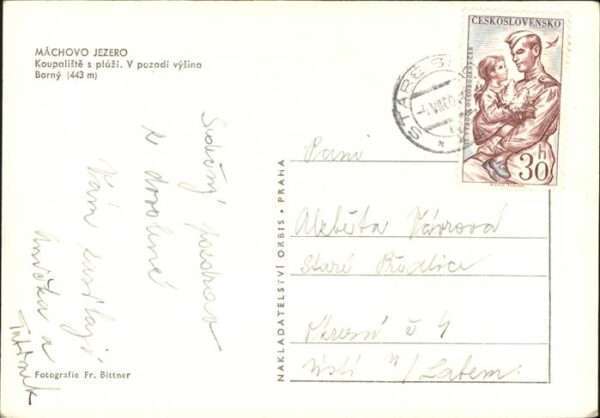 MÁCHOVO JEZERO
Koupaliště s pláží. V pozadí výšina
Borný (443 m)
Srdečný pozdrav
z dovolené
Vám zasílají
Anička a
Tatínek
Fotografie Fr. Bittner
NAKLADATELSTVÍ ORBIS • PRAHA
ČESKOSLOVENSKO
30 h
STARÉ S
Paní
Alžběta Vávrová
Staré Předlice
Okružní č 4
Ústí n/Labem.